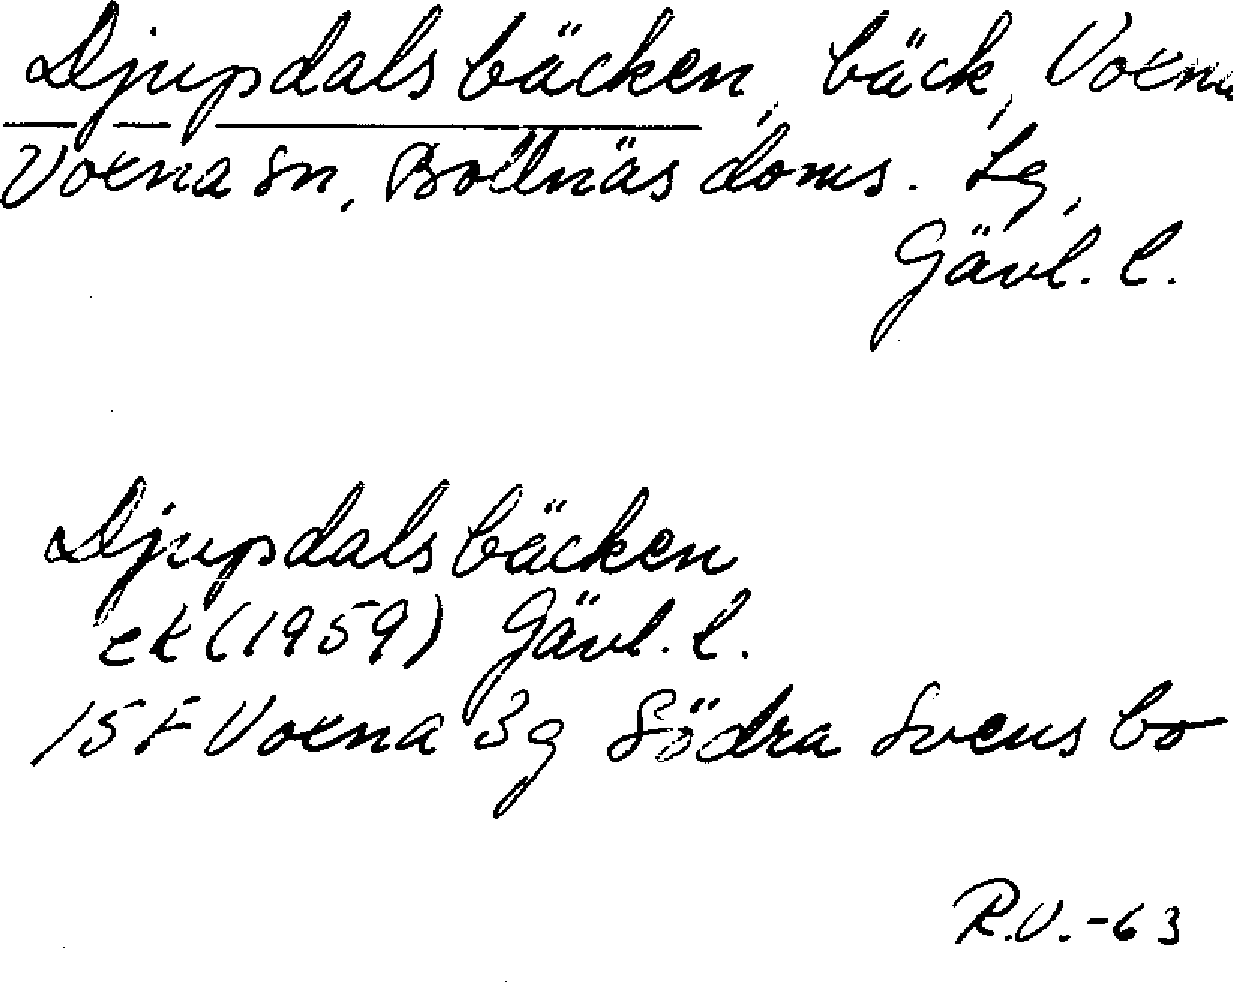 Djupdalsbäcken, bäck, Voxna
Voxna sn, Bollnäs doms. tg,
Gävl. l.
Djupdalsbäcken
ek (1959) Gävl. l.
15F Voxna 3g Södra Svensbo
R.V.-63